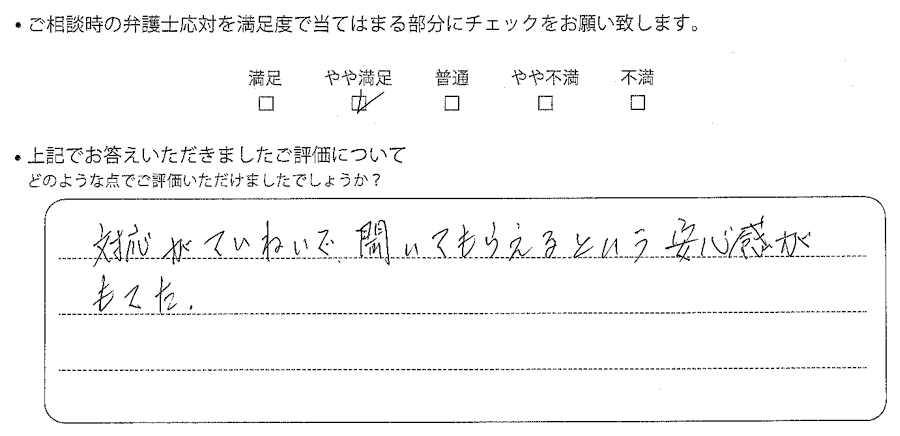 ・ご相談時の弁護士応対を満足度で当てはまる部分にチェックをお願い致します。
満足 やや満足 普通 やや不満 不満
□ ☑ □ □ □
・上記でお答えいただきましたご評価について
どのような点でご評価いただけましたでしょうか？
対応がていねいで、聞いてもらえるという安心感が
もてた.